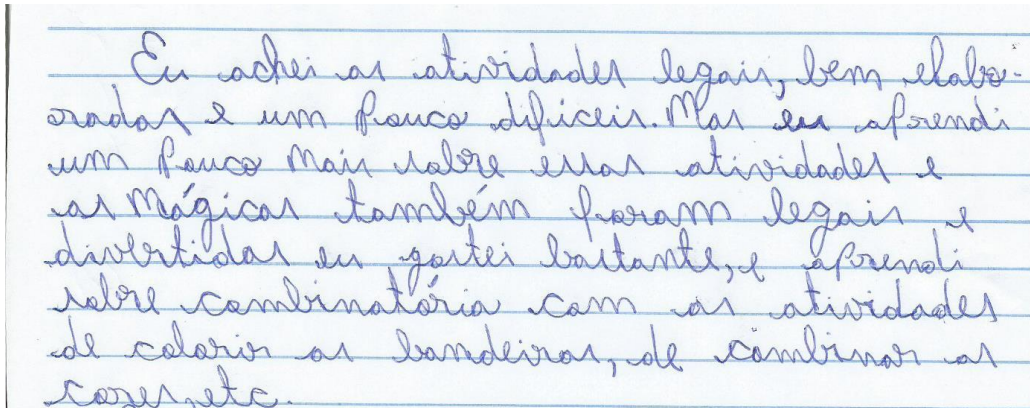 Eu achei as atividades legais, bem elabo-
radas e um pouco difíceis. Mas eu aprendi
um pouco mais sobre essas atividades e
as mágicas também foram legais e
divertidas eu gostei bastante, e aprendi
sobre combinatória com as atividades
de colorir as bandeiras, de combinar as
cores, etc.